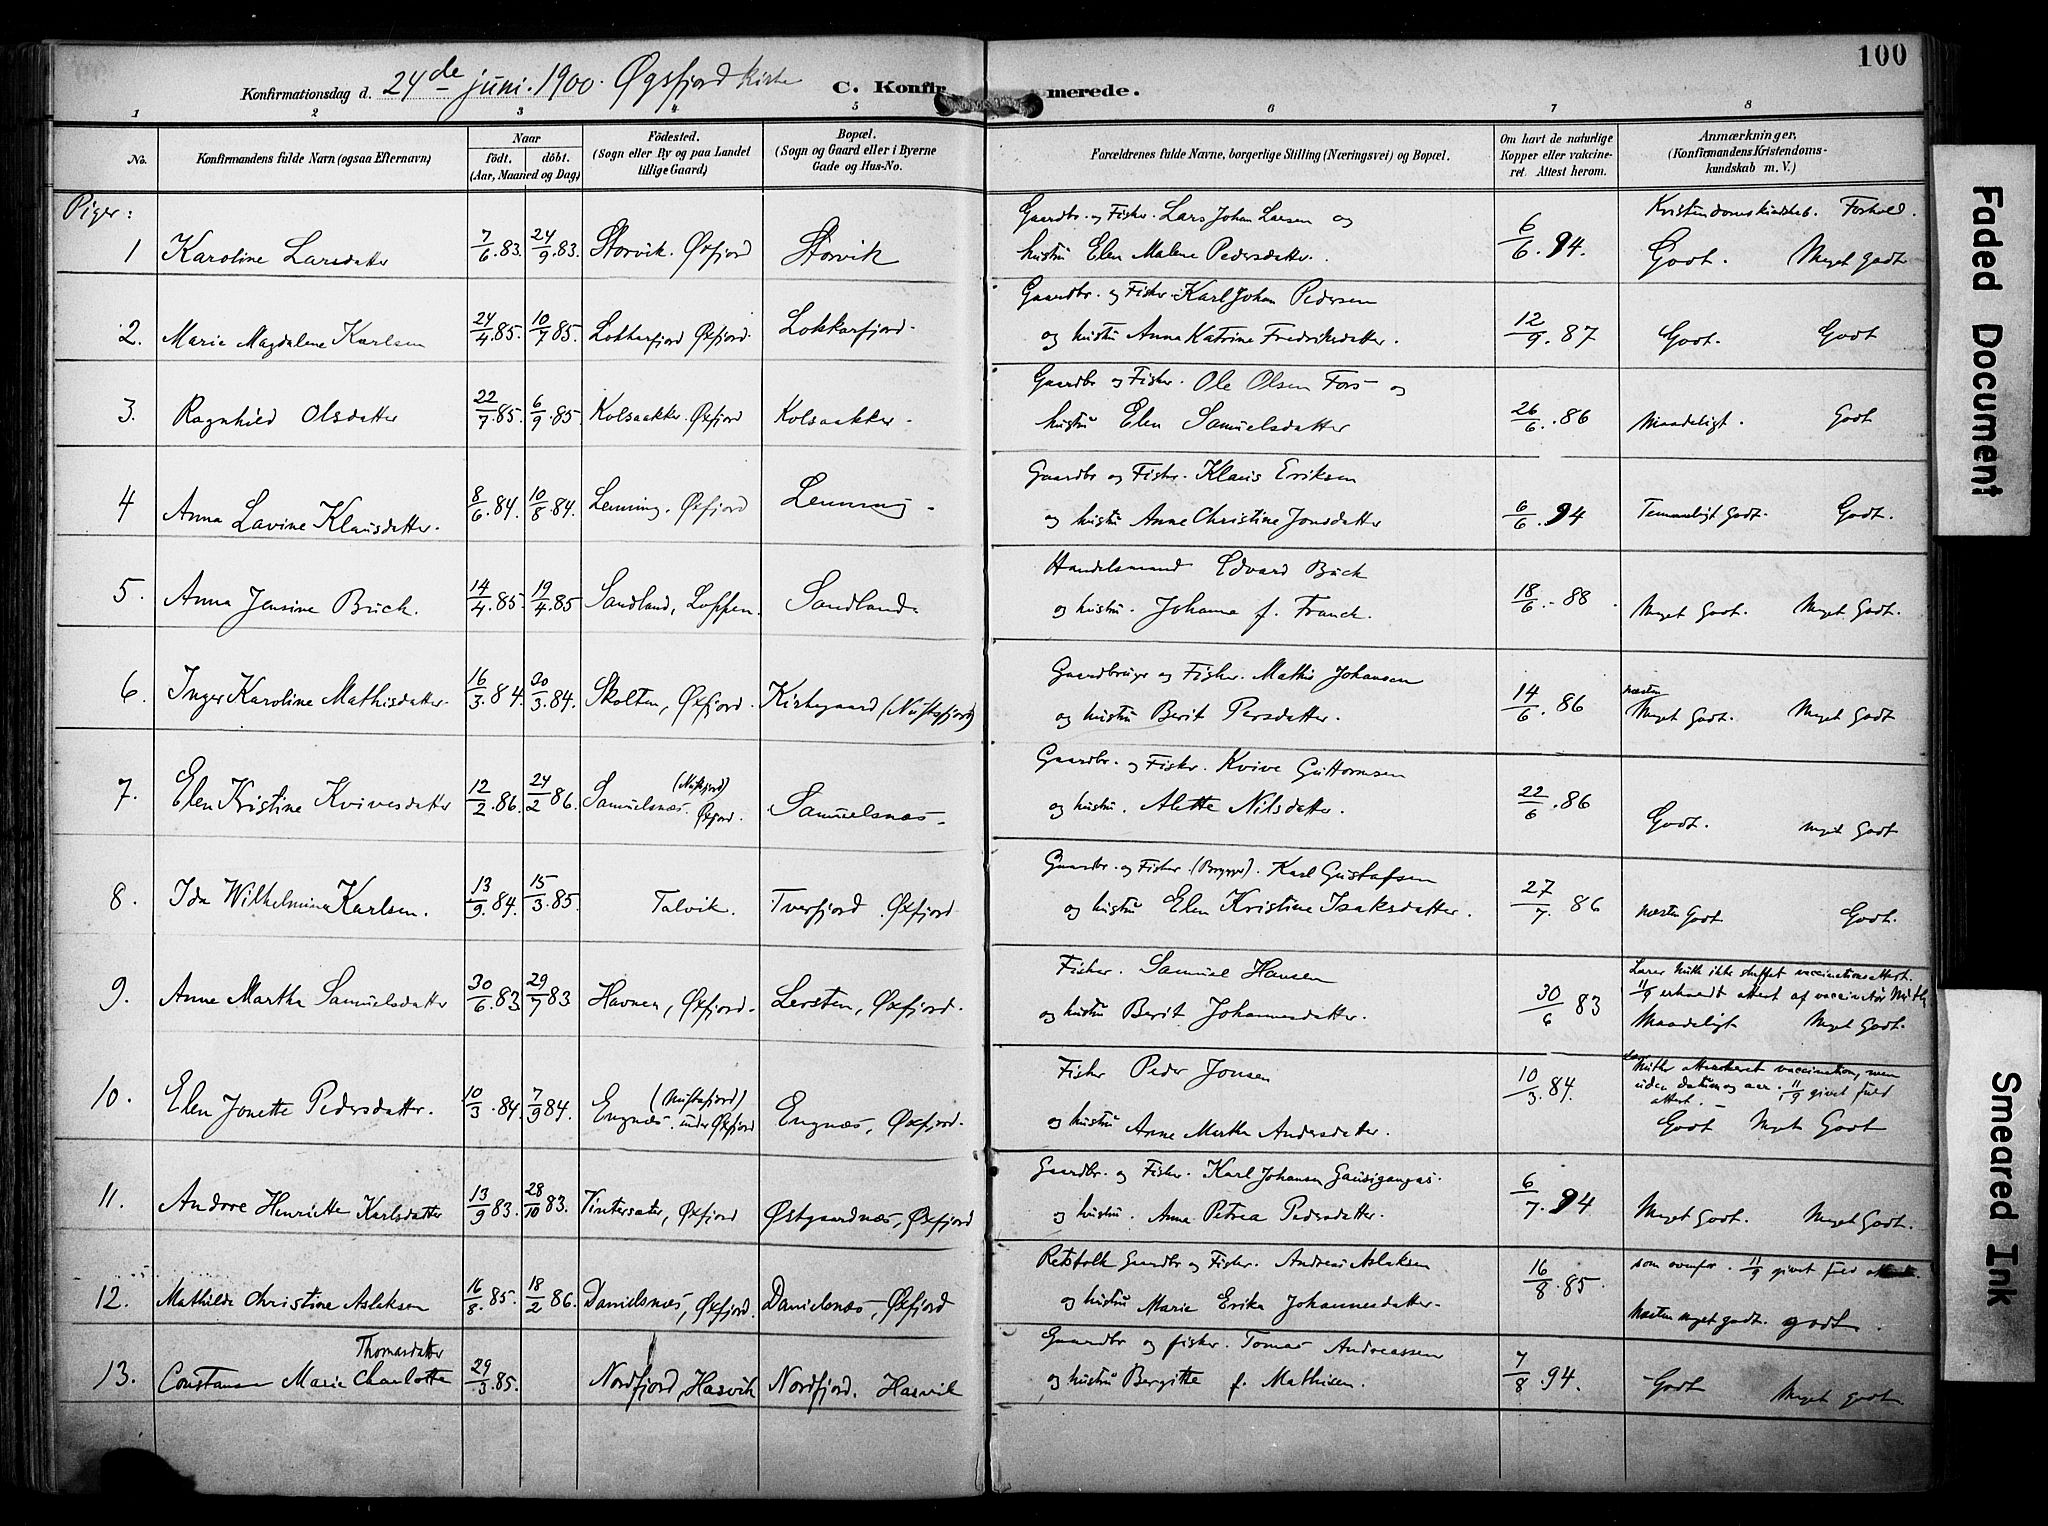 100
Konfirmationsdag d. 24de juni. 1900. Øgsfjord kirke
C. Konfirmerede.
1 2 3 4 5 6 7 8
No. Konfirmandens fulde Navn (ogsaa Efternavn) Naar födt. döbt. (Aar, Maaned og Dag) Födested. (Sogn eller By og paa Landet tillige Gaard) Bopæl. (Sogn og Gaard eller i Byerne Gade og Hus-No.
Forældrenes fulde Navne, borgerlige Stilling (Næringsvei) og Bopæl. Om havt de naturlige Kopper eller vakcineret. Attest herom. Anmærkninger, (Konfirmandens Kristendomskundskab m. V.)
Piger:
Kristendomskundskab. Forhold.
1 Karoline Larsdatter 7/6.83. 24/9.83. Storvik. Øxfjord Storvik Gaardbr. og Fisker. Lars Johan Larsen og
hustru Elen Malene Pedersdatter. 6/6.94. Godt. Meget godt
2. Marie Magdalene Karlsen 24/4.85. 10/7.85. Lokkarfjord Øxfjord. Lokkarfjord. Gaardbr. og Fisker. Karl Johan Pedersen
og hustru Anna Katrine Fredriksdatter. 12/9.87 Godt. Godt
3. Ragnhild Olsdatter 22/7.85. 6/9.85. Kolsaakker. Øxfjord Kolsaakker. Gaardbr og Fisker. Ole Olsen Fors og
hustru Elen Samuelsdatter 26/6.86 Maadeligt. Godt
4 Anna Lavine Klausdatter. 8/6.84. 10/8.84. Lenning. Øxfjord Lenning. Gaardbr og Fisker. Klaus Eriksen
og hustru Anne Christine Jonsdatter 6/6.94 Temmeligt godt. Godt.
5. Anna Jensine Buck. 14/4.85. 19/4.85 Sandland, Loppen. Sandland. Handelsmand Edvard Buck
og hustru. Johanna f. Franck. 18/6.-88. Meget Godt. Meget Godt.
6. Inger Karoline Mathisdatter. 16/3.84. 20/3.84. Skolten, Øxfjord. Kirkegaard (Nuftsfjord) Gaardbruger og Fisker. Mathis Johansen
og hustru Berit Persdatter. 14/6.86 næsten Meget Godt. Meget Godt
7. Elen Kristine Kvivesdatter 12/2.86. 24/2.86. Samuelsnæs. (Nuftsfjord) Øxfjord. Samuelsnæs. Gaardbr. og Fisker. Kvive Guttormsen
og hustru. Alette Nilsdatter. 22/6.86 Godt. Meget Godt
8. Ida Wilhelmina Karlsen. 13/9.84. 15/3.85. Talvik. Tverfjord Øxfjord Gaardbr. og Fisker Karl Gustafsen
og hustru Elen Kristine Isaksdatter. 27/7.86 næsten Godt Godt.
9. Anne Martha Samuelsdatter 30/6.83 29/7.83 Havnen, Øxfjord. Lersten, Øxfjord. Fisker. Samuel Hansen
og hustru Berit Johannesdatter. 30/6 83 11/9 attest af vaccinatør
Maadeligt Meget Godt.
10. Elen Jonette Pedersdatter. 10/3.84. 7/9 84. Engnæs. (Nuftsfjord) under Øxfjord Engnæs, Øxfjord. Fisker Peder Jonsen
og hustru Anne Marthe Andersdatter. 10/3.84. vaccination, men
uden datum og aar. 11/9 givet fuld
attest.
Godt Meget Godt
11. Andore Henriette Karlsdatter 13/9 83. 28/10 83. Vintersæter, Øxfjord Østgaardnæs, Øxfjord Gaardbr. og Fisker. Karl Johansen
og hustru. Anna Petrea Pedersdatter. 6/7.94 Meget Godt. Meget Godt.
12. Mathilde Christine Aslaksen 16/8.85. 18/2 86. Danielsnæs, Øxfjord. Danielsnæs, Øxfjord Gaardbr og Fisker. Andreas Aslaksen
og hustru Marie Erika Johannesdatter. 16/8.85. som ovenfor. 11/9 givet fuld attest.
Næsten meget godt. godt.
13. Constance Marie Charlotte Thomasdatter 29/3.85. Nordfjord, Hasvik Nordfjord. Hasvik Gaardbr og fisker. Tomas Andreassen
og hustru Bergitte f. Mathisen. 7/8.94. Godt Meget godt.
Faded Document
Smeared Ink